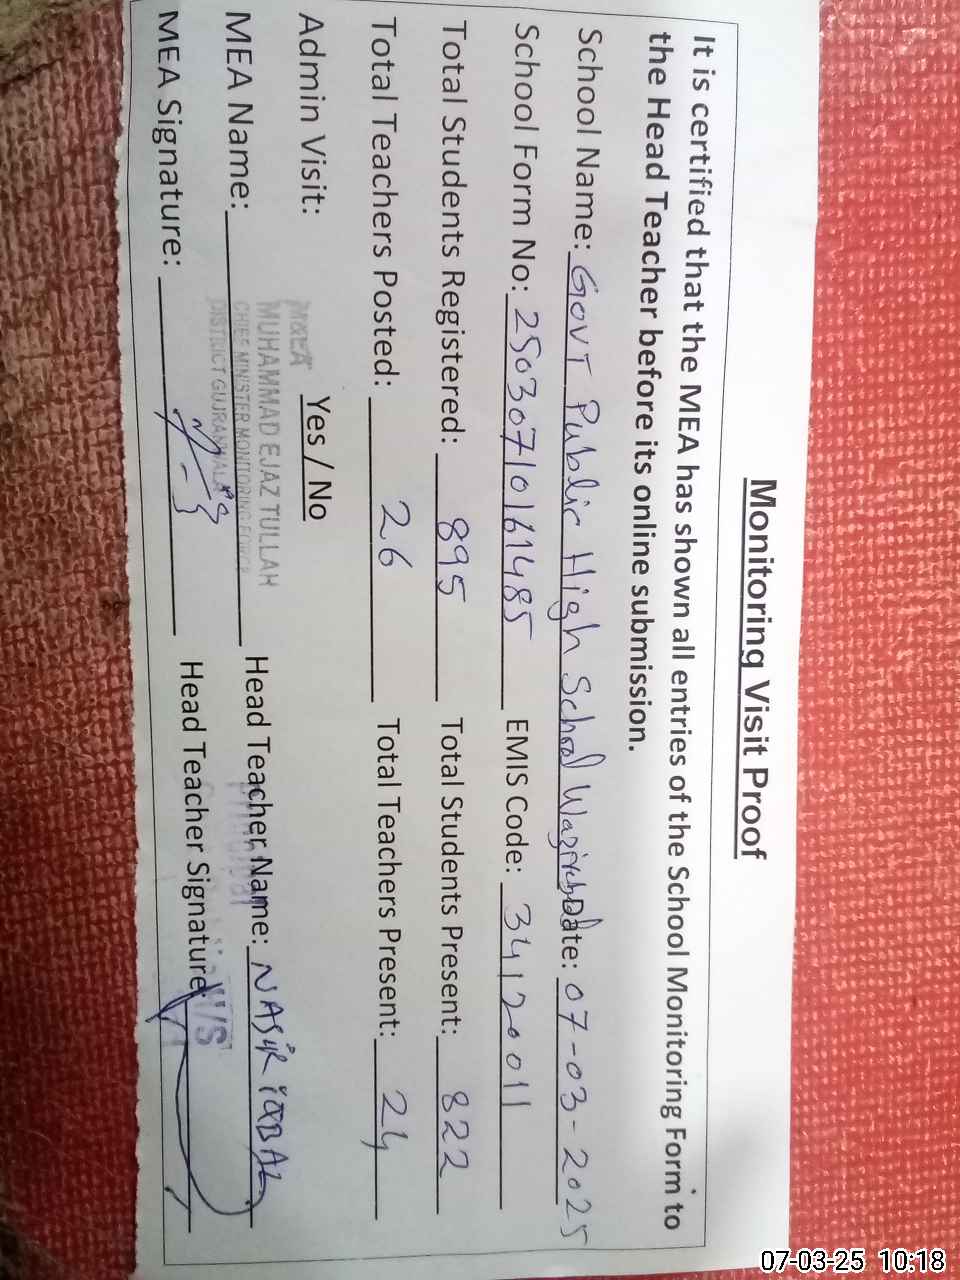 Monitoring Visit Proof
It is certified that the MEA has shown all entries of the School Monitoring Form to
the Head Teacher before its online submission.
School Name: Govt Public High School Wazirabad Date: 07-03-2025
School Form No: 25030710161485 EMIS Code: 34120011
Total Students Registered: 895 Total Students Present: 822
Total Teachers Posted: 26 Total Teachers Present: 24
Admin Visit: Yes / No
M&EA
MUHAMMAD EJAZ TULLAH
CHIEF MINISTER MONITORING FORCE
DISTRICT GUJRANWALA
MEA Name: Head Teacher Name: NASIR IQBAL
MEA Signature: Head Teacher Signature:
07-03-25 10:18